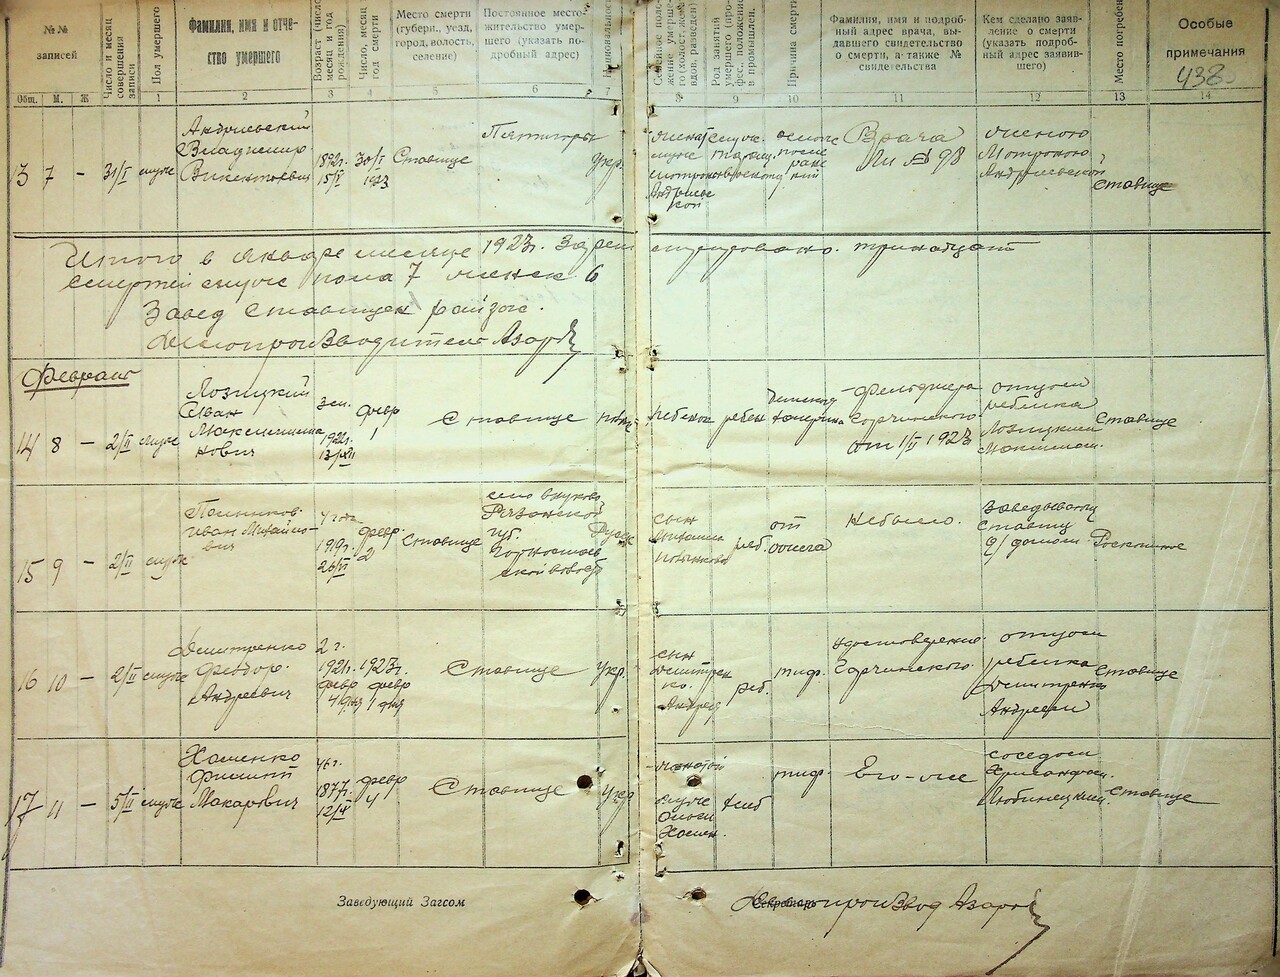 №№ записей
Общ. М. Ж
Число и месяц совершения записи
Пол умершего
Фамилия, имя и отче-
ство умершего
Возраст (число, месяц и год рождения)
Число, месяц год смерти
Место смерти
(губерн., уезд,
город, волость,
селение)
Постоянное место-
жительство умер-
шего (указать по-
дробный адрес)
Национальность
Род занятий
Причина смерти
Фамилия, имя и подроб-
ный адрес врача, вы-
давшего свидетельство
о смерти, а также №
свидетельства
Кем сделано заяв-
ление о смерти
(указать подроб-
ный адрес заявив-
шего)
Место погребен.
Особые
примечания
438
1 2 3 4 5 6 7 8 9 10 11 12 13 14
13 7 – 31/I муж
Андриевский
Владимир
Викентьевич
1892г.
15/V
30/I
1923
Ставище
Пятигоры
укр.
после
Врача
№ 98
женою
Мотроною
Андриевской
Ставище
Итого в январе месяце 1923г. Зарегистрировано тринадцат
смертей муж пола 7 женск 6
Завед Ставищен райзаг.
Делопроизводитель Азаров
Февраль
14 8 – 2/II муж
Лозицкий
Иван
Максимилиа
нович
1922г.
февр
1
Ставище
ребенок
ребен
Фельдшера
Горчинского
от 1/II 1923
отцом
ребенка
Лозицким
Ставище
15 9 – 2/II муж
Иван Михайло-
вич
1919г.
26/VI
февр.
2
Ставище
село
Рязанской
губ.
Русск
сын
реб.
от
ожега
Небыло.
Заведывающ
Ставищ
д/домом
16 10 – 2/II муж
Дмитренко
Феодор
Андреевич
2 г.
1921г.
февр
1923г.
февр
1 дня
Ставище
укр.
сын
Дмитрен
ко
Андрея
реб.
тиф.
Удостоверение
Горчинского
отцом
ребенка
Дмитренко
Андреем
Ставище
17 11 – 5/II муж
Хоменко
Филипп
Макарович
46г.
1877г.
12/XI
февр
4
Ставище
укр
женатой
муже
Ольги
Хомен.
хлеб
тиф.
Его-же
соседом
Хрисанфом
Любинецким
Ставище
Заведующий Загсом
Делопроизвод Азаров